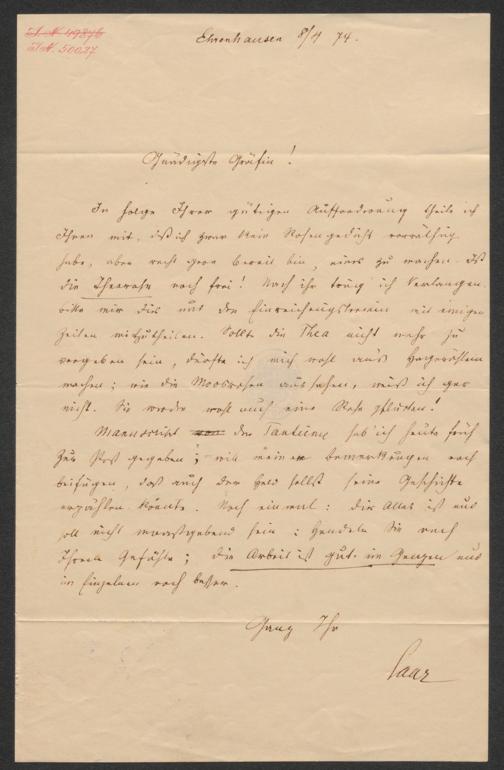 I. N. 49876
I. N. 50027
Ehrenhausen 8/4 74.
Gnädigste Gräfin!
In Folge Ihrer gütigen Aufforderung theile ich
Ihnen mit, daß ich zwar kein Rosengedicht vorräthig
habe, aber recht gern bereit bin, eines zu machen. Ist
die Thearose noch frei? Nach ihr trüg' ich Verlangen.
bitte mir dies und den Einreichungstermin mit einigen
Zeilen mitzutheilen. Sollte die Thea nicht mehr zu
vergeben sein, dürfte ich mich wohl an's
machen; wie die Moosrosen aussehen, weiß ich gar
nicht. Sie werden wohl auch eine Rose pflücken!
Manuscript der Tantième hab' ich heute früh
zur Post gegeben; will meinen Bemerkungen noch
beifügen, daß auch der Held selbst seine Geschichte
erzählen könnte. Noch einmal: dies Alles ist und
soll nicht maassgebend sein: Handeln Sie nach
Ihrem Gefühle; die Arbeit ist gut im Ganzen und
im Einzelnen noch besser.
Ganz Ihr
Saar